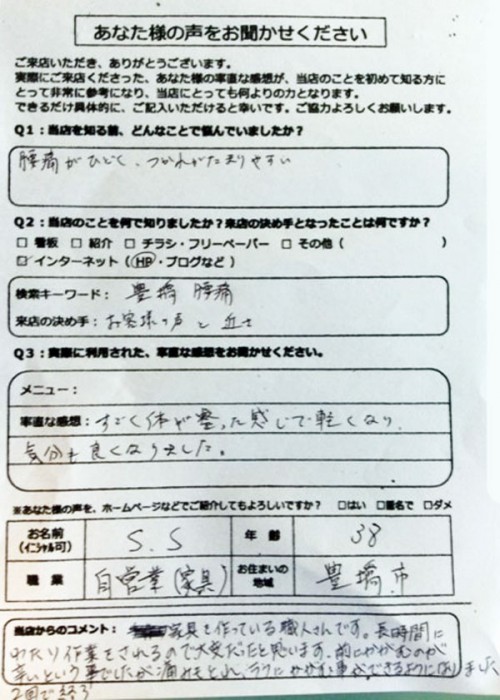 あなた様の声をお聞かせください
ご来店いただき、ありがとうございます。
実際にご来店くださった、あなた様の率直な感想が、当店のことを初めて知る方に
とって非常に参考になり、当店にとっても何よりの力となります。
できるだけ具体的に、ご記入いただけると幸いです。ご協力よろしくお願いします。
Q1:当店を知る前、どんなことで悩んでいましたか?
腰痛がひどく、つかれがたまりやすい
Q2:当店のことを何で知りましたか?来店の決め手となったことは何ですか?
□ 看板 □ 紹介 □ チラシ・フリーペーパー □ その他( )
☑ インターネット(HP・ブログなど)
検索キーワード: 豊橋 腰痛
来店の決め手: お客様の声と近さ
Q3:実際に利用された、率直な感想をお聞かせください。
メニュー:
率直な感想:すごく体が整った感じで軽くなり、
気分も良くなりました。
※あなた様の声を、ホームページなどでご紹介してもよろしいですか? □はい □匿名で □ダメ
お名前 (イニシャル可) S.S 年齢 38
職業 自営業(家具) お住まいの地域 豊橋市
当店からのコメント: 家具を作っている職人さんです。長時間に
わたり作業をされるので大変だったと思います。前にかがむのが
辛いという事でしたが痛みもとれ、ラクにかがむ事ができるようになりました
2回で